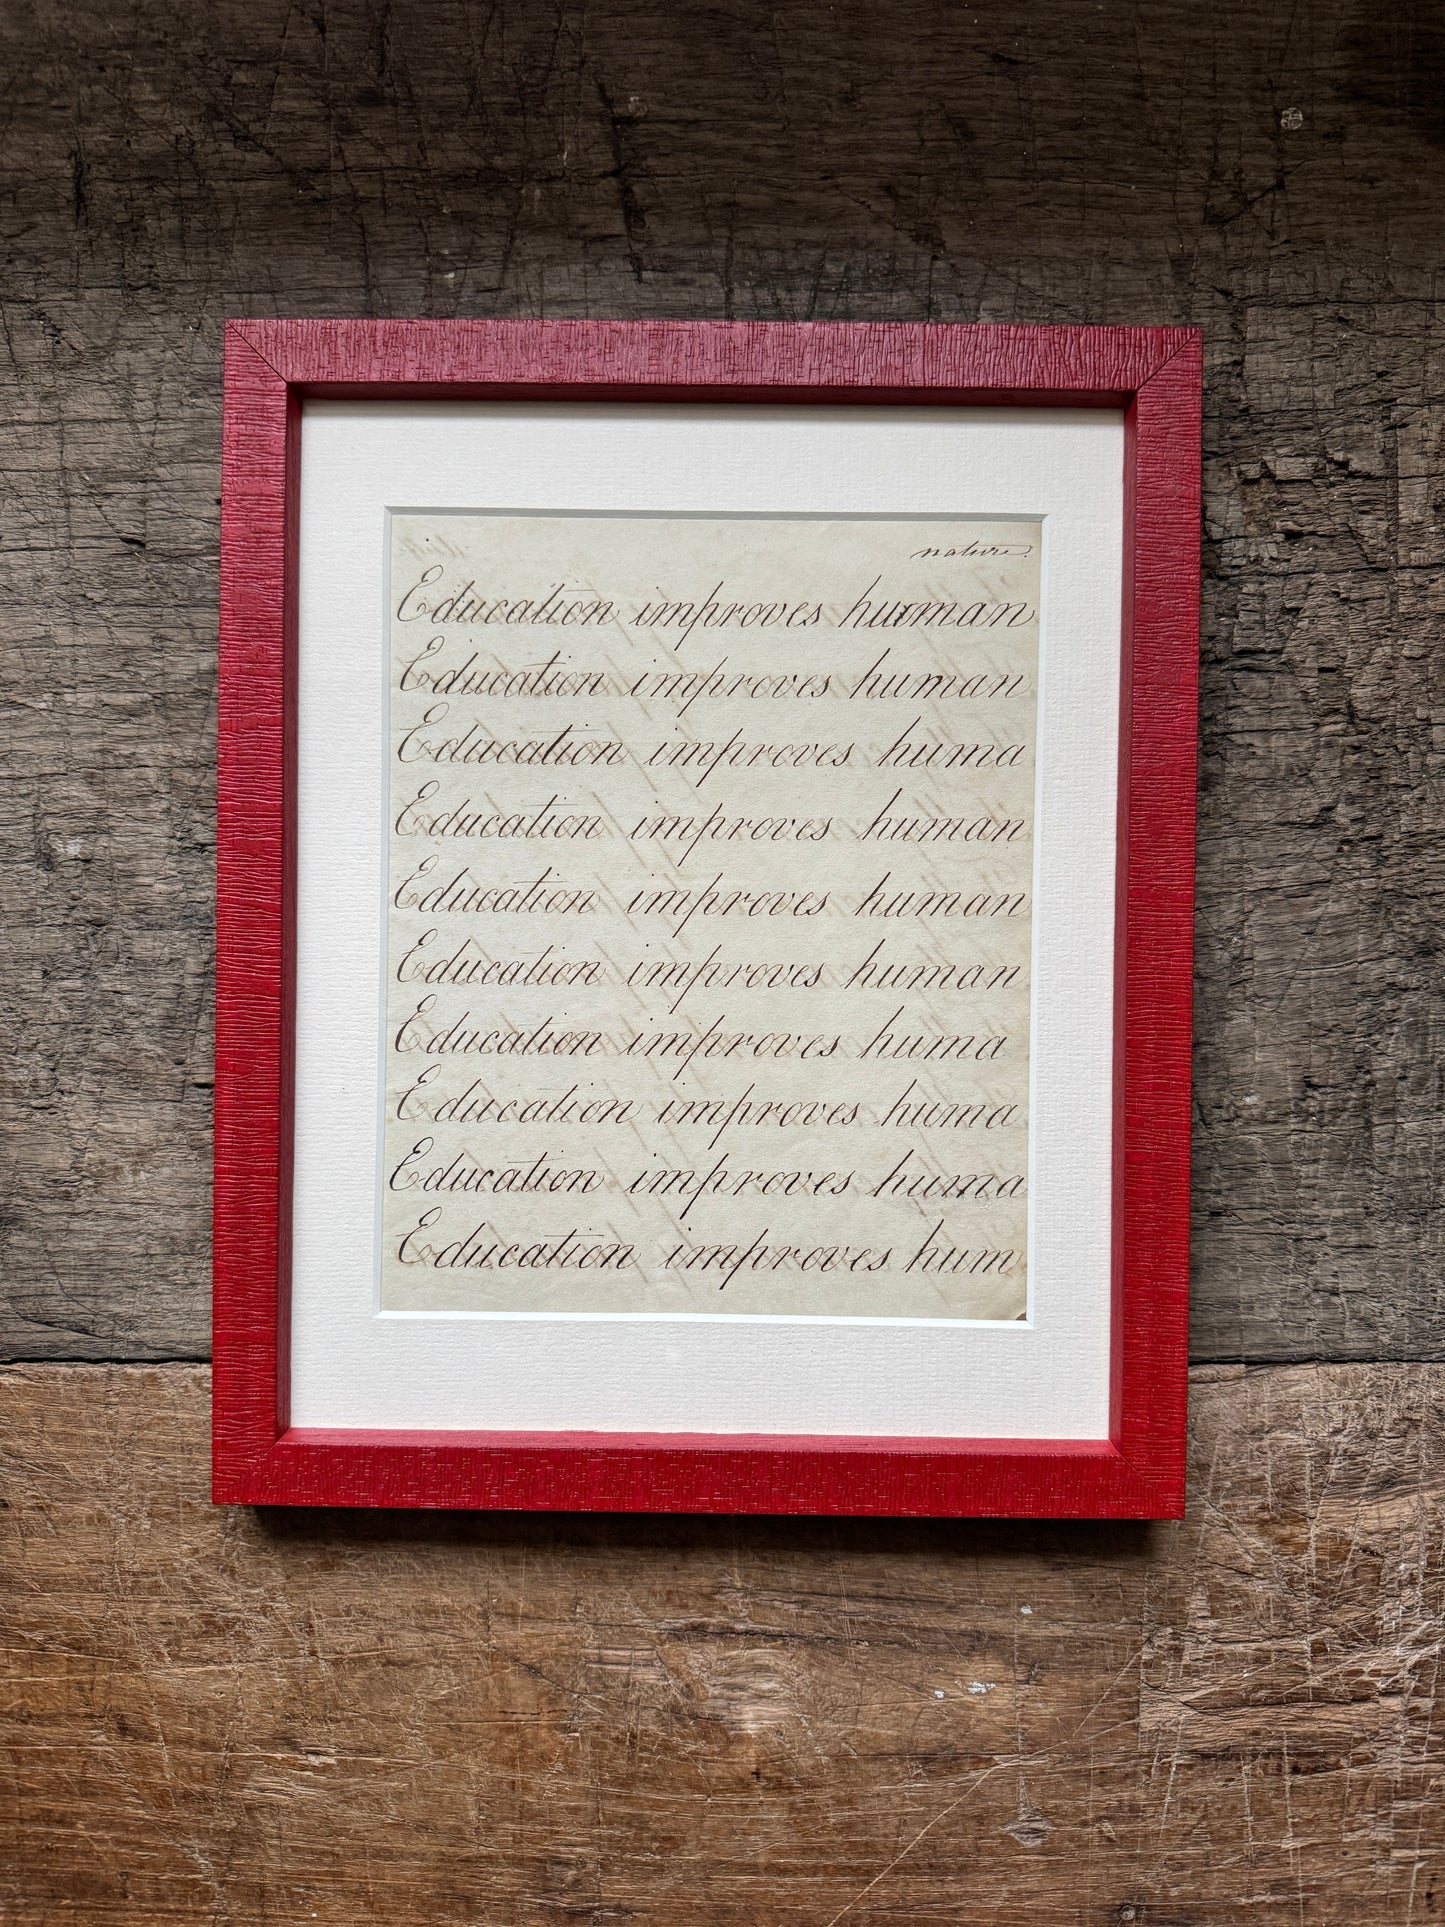 nature.
Education improves human
Education improves human
Education improves huma
Education improves human
Education improves human
Education improves human
Education improves huma
Education improves huma
Education improves huma
Education improves hum